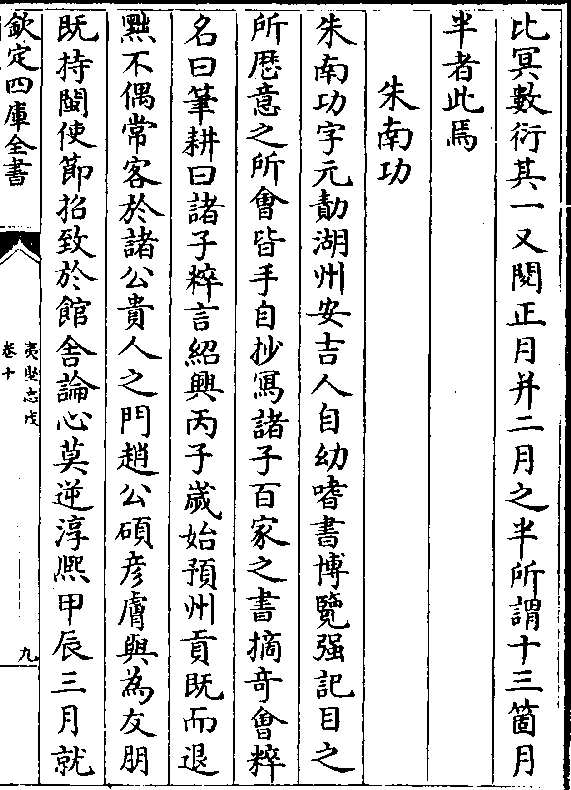 比冥數衍其一又閱正月并二月之半所謂十三箇月
半者此焉
朱南功
朱南功字元勣湖州安吉人自幼嗜書博覽强記目之
所歴意之所會皆手自抄寫諸子百家之書摘奇會粹
名曰筆耕曰諸子粹言紹興丙子歲始預州貢既而退
黜不偶常客於諸公貴人之門趙公碩彦膚與為友朋
既持閩使節招致於館舍論心莫逆淳熈甲辰三月就
欽定四庫全書
夷堅志戊
卷十
九